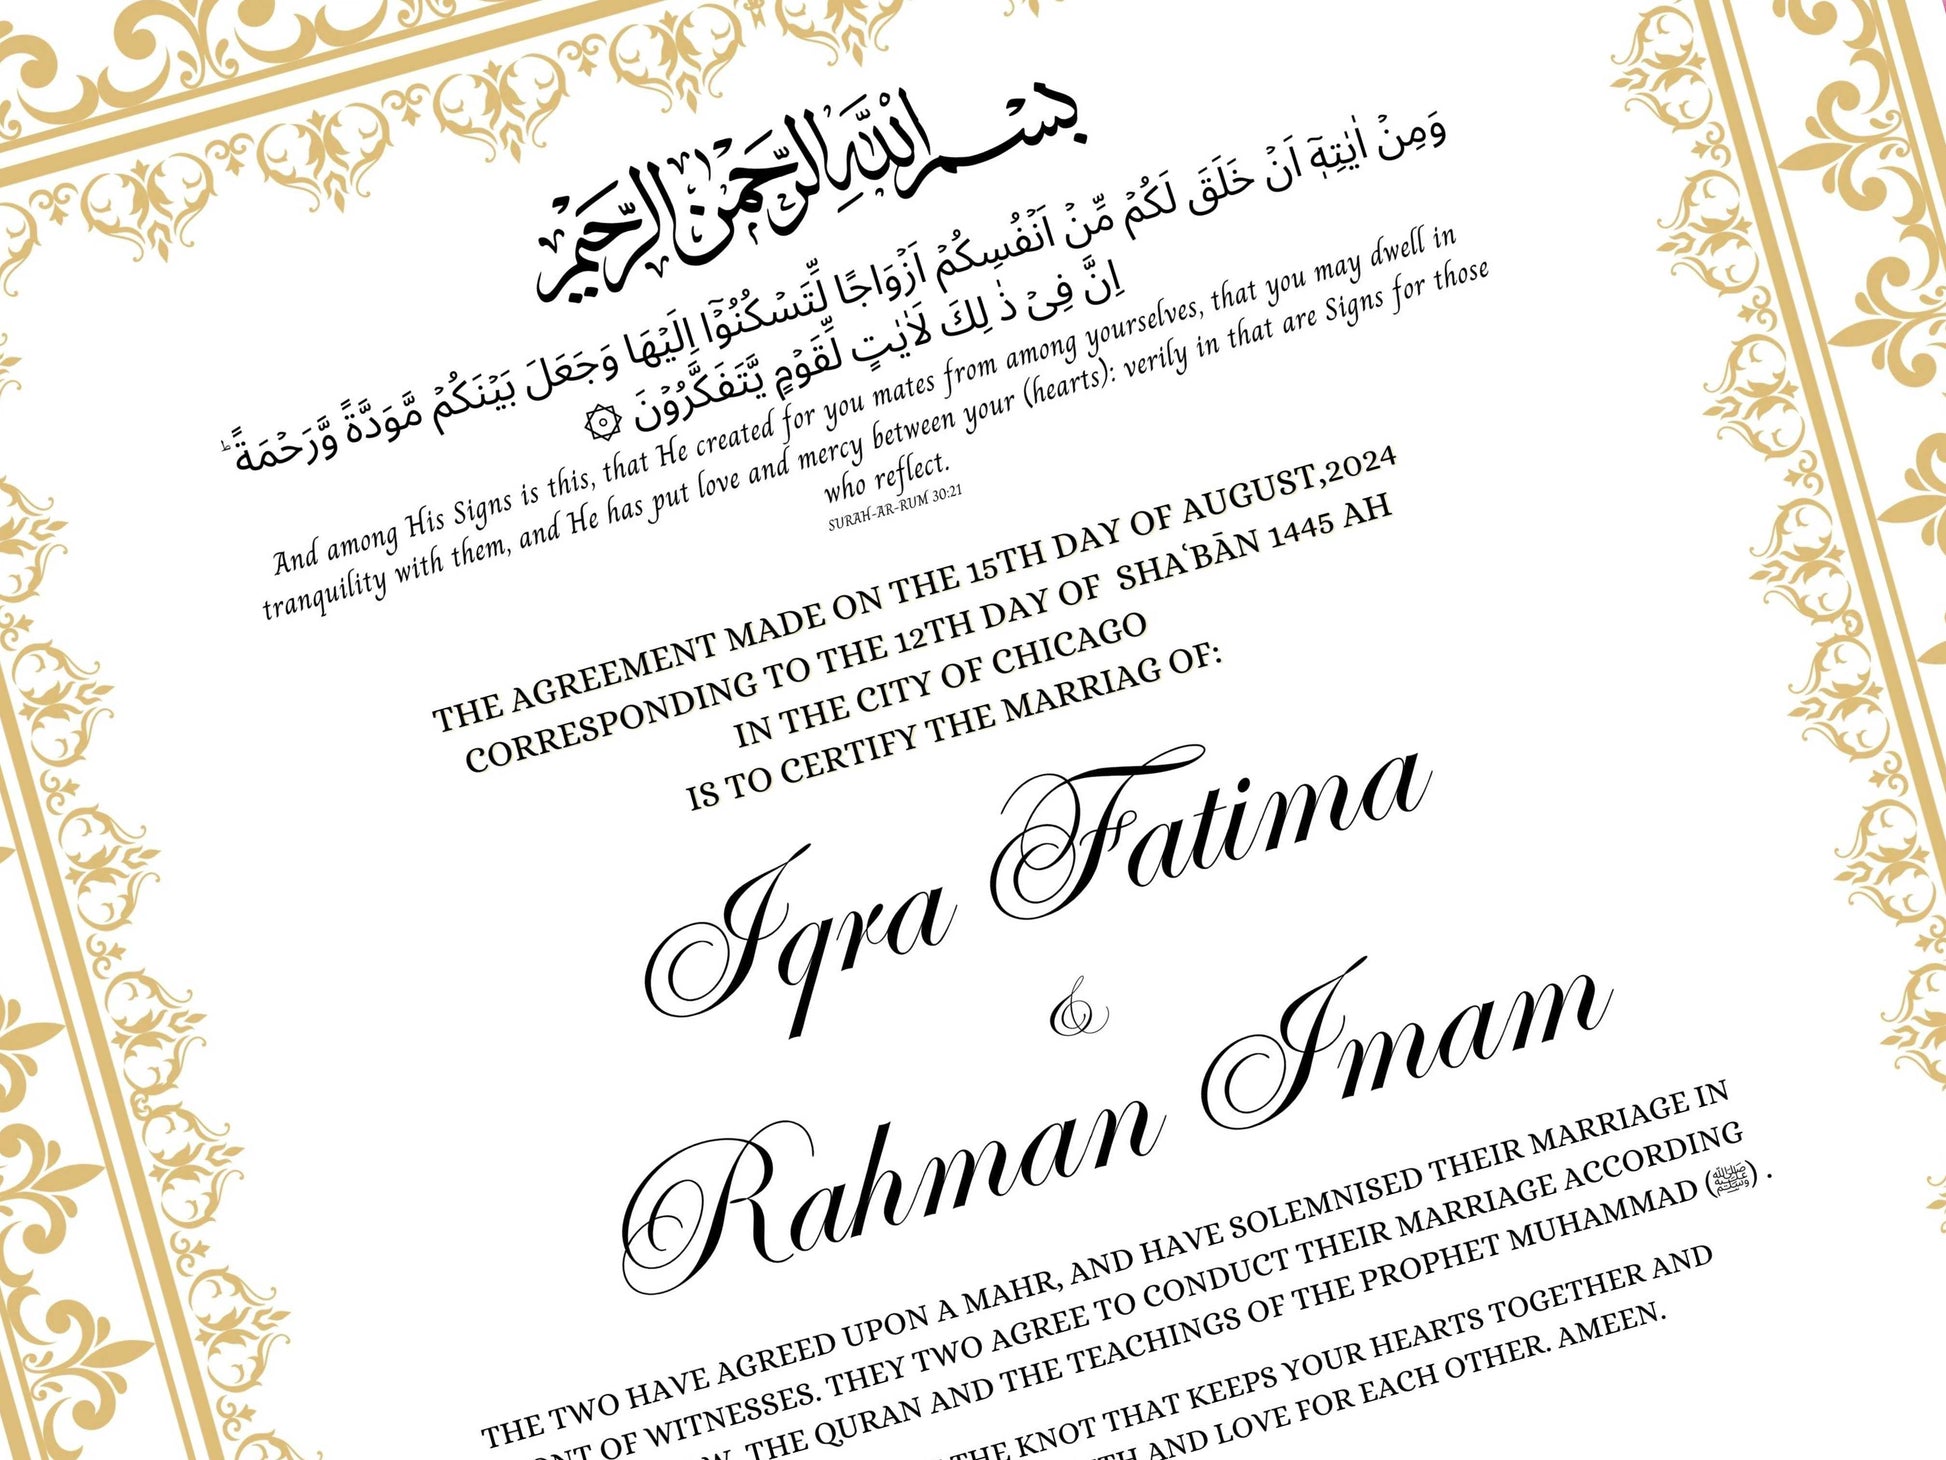 بِسْمِ اللَّهِ الرَّحْمَٰنِ الرَّحِيمِ
وَمِنْ اٰيٰتِهٖٓ اَنْ خَلَقَ لَكُمْ مِّنْ اَنْفُسِكُمْ اَزْوَاجًا لِّتَسْكُنُوْٓا اِلَيْهَا وَجَعَلَ بَيْنَكُمْ مَّوَدَّةً وَّرَحْمَةً ؕ
اِنَّ فِىْ ذٰ لِكَ لَاٰيٰتٍ لِّقَوْمٍ يَّتَفَكَّرُوْنَ ۞
And among His Signs is this, that He created for you mates from among yourselves, that you may dwell in
tranquility with them, and He has put love and mercy between your (hearts): verily in that are Signs for those
who reflect.
SURAH-AR-RUM 30:21
THE AGREEMENT MADE ON THE 15TH DAY OF AUGUST,2024
CORRESPONDING TO THE 12TH DAY OF SHAʿBĀN 1445 AH
IN THE CITY OF CHICAGO
IS TO CERTIFY THE MARRIAG OF:
Iqra Fatima
&
Rahman Imam
THE TWO HAVE AGREED UPON A MAHR, AND HAVE SOLEMNISED THEIR MARRIAGE IN
OF WITNESSES. THEY TWO AGREE TO CONDUCT THEIR MARRIAGE ACCORDING
THE QURAN AND THE TEACHINGS OF THE PROPHET MUHAMMAD (ﷺ) .
THE KNOT THAT KEEPS YOUR HEARTS TOGETHER AND
AND LOVE FOR EACH OTHER. AMEEN.